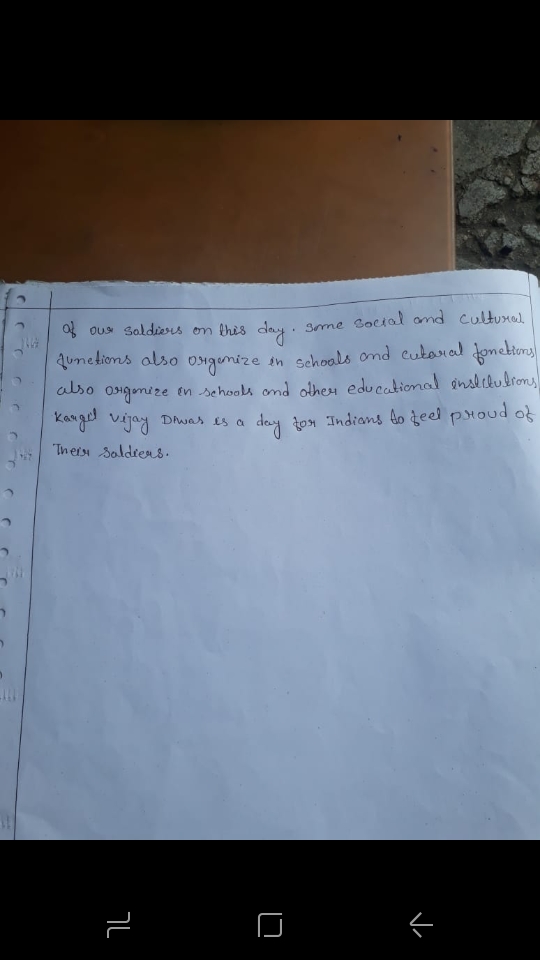 of our saldiers on this day. some social and cultural
functions also orgenize in schoals and cutaral fonetions
also orgenize in schools and other educational institutions
Kargil Vijay Diwas is a day for Indians to feel proud of
Their saldiers.